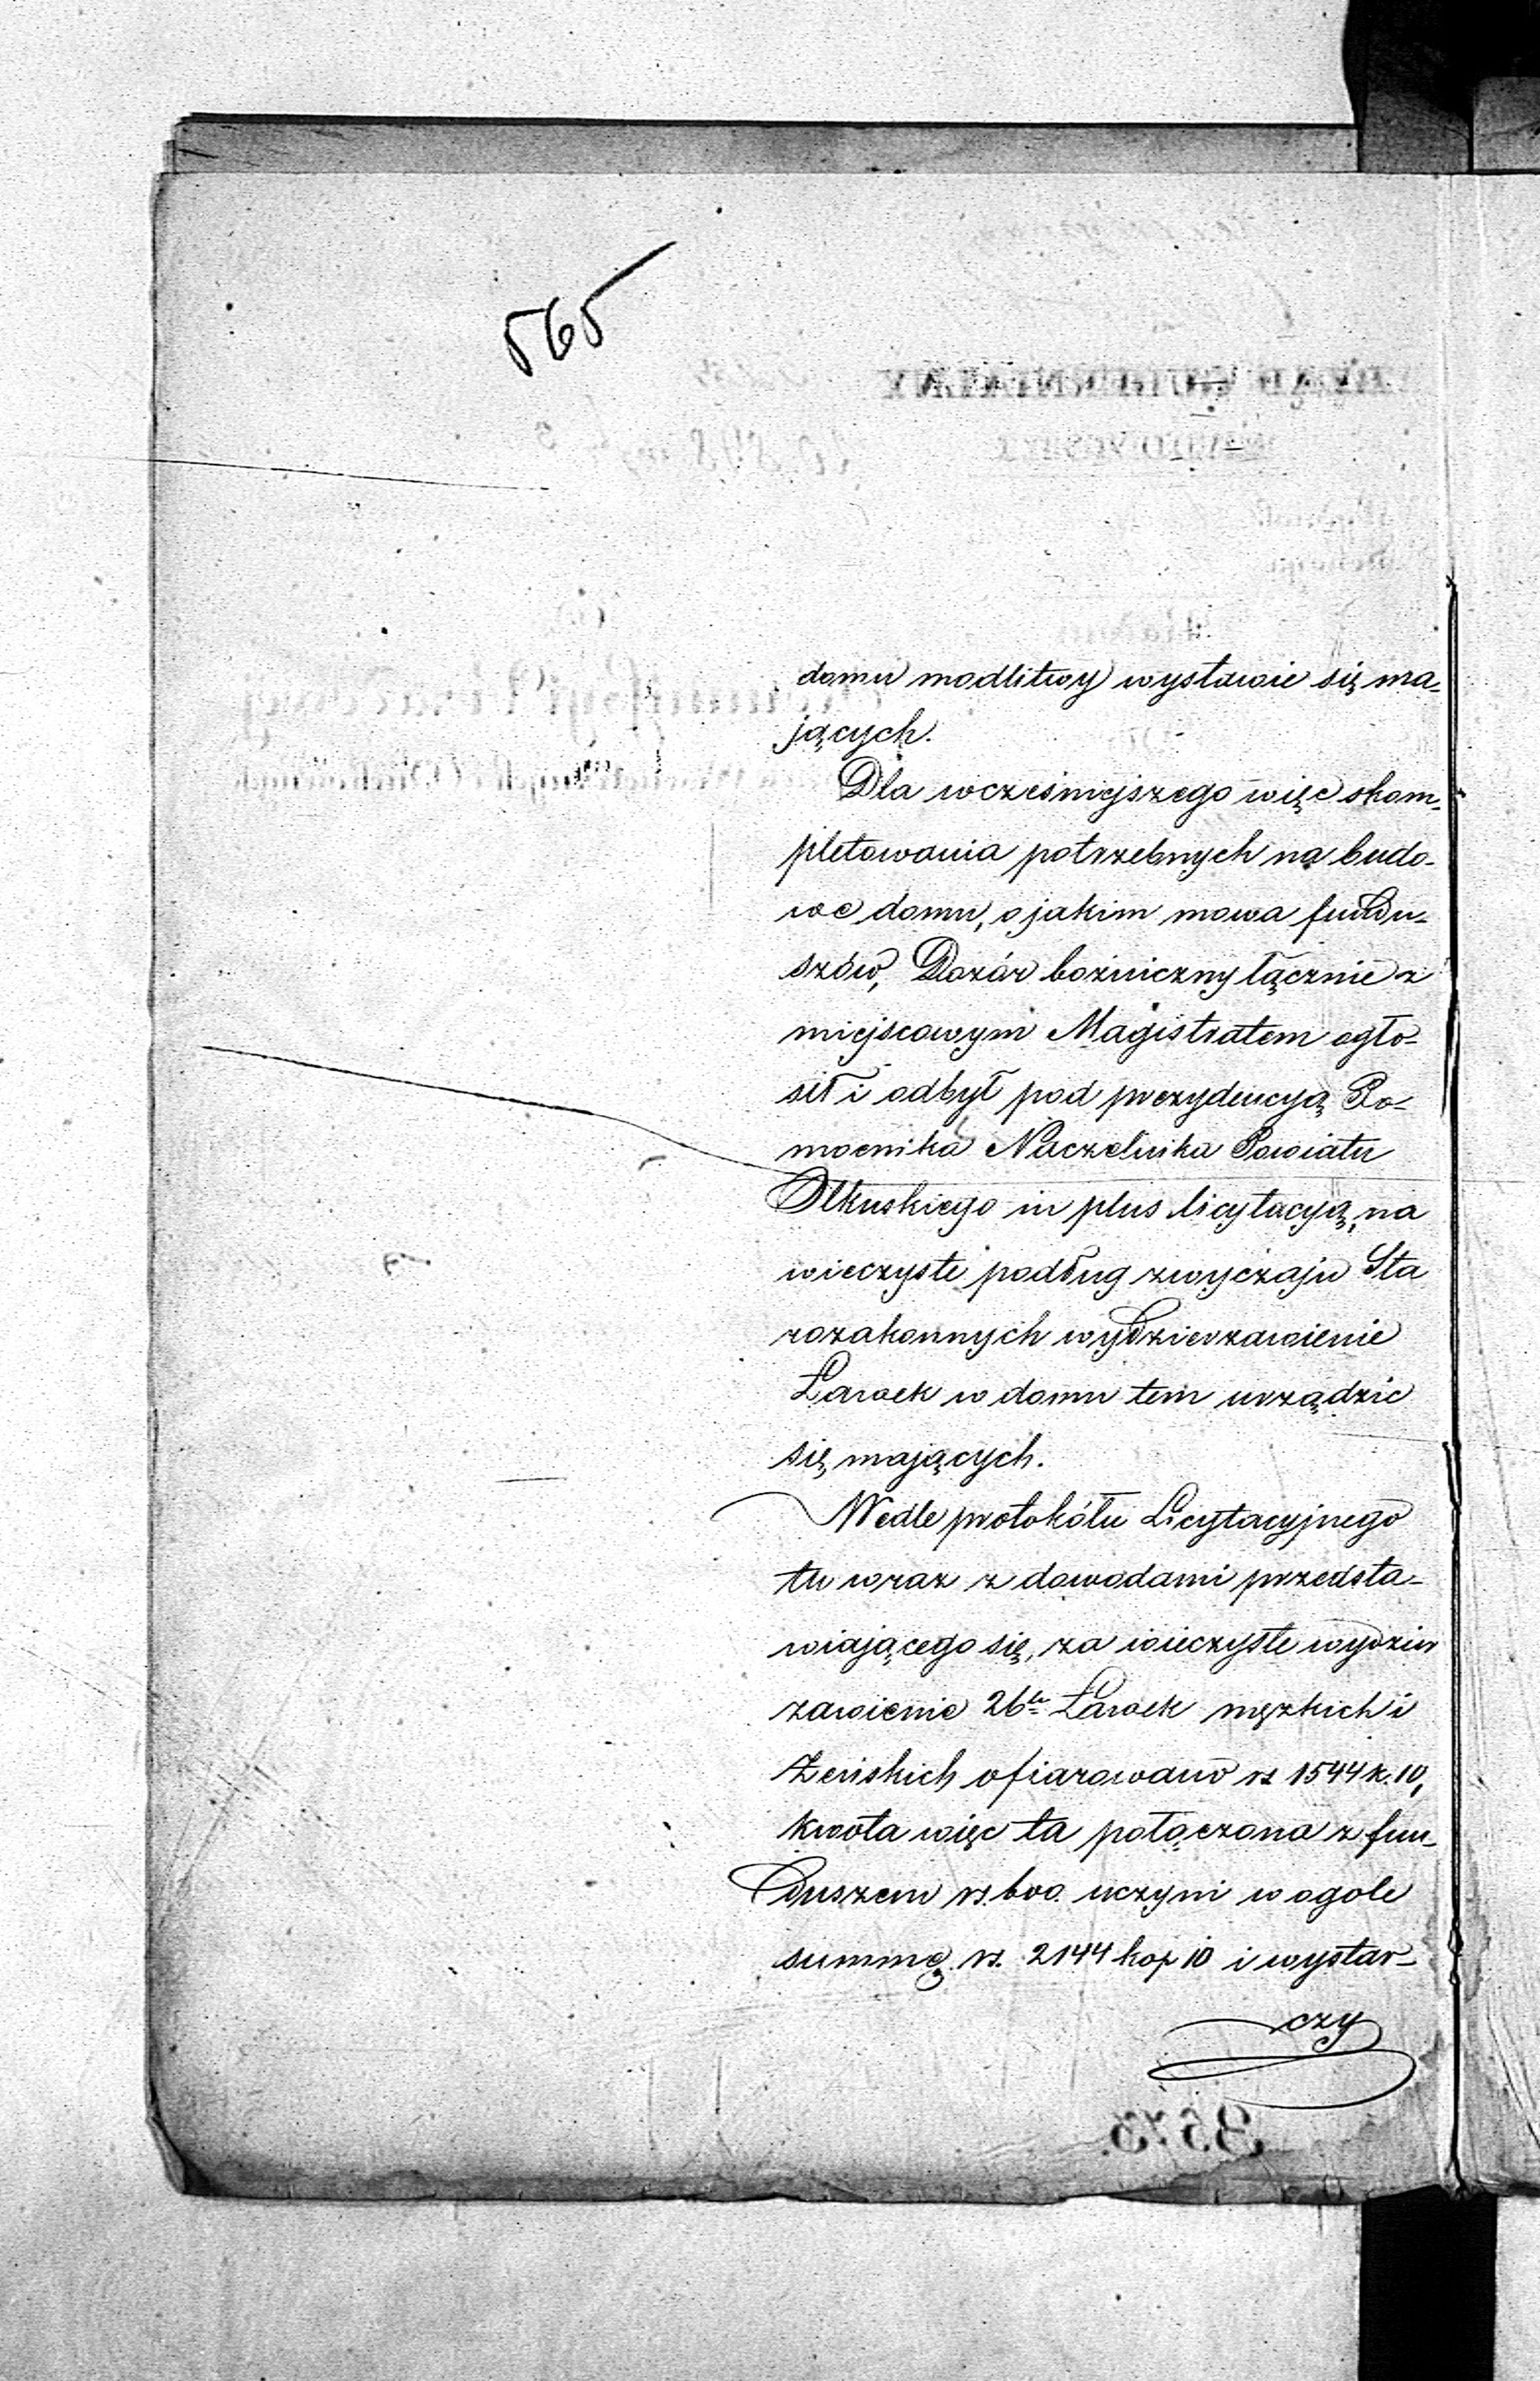 565
domu modlitwy wystawić się ma-
jących.
Dla wcześniejszego więc skom-
pletowania potrzebnych na budo-
wę domu, o jakim mowa fundu-
szów, Dozór bożniczny łącznie z
miejscowym Magistratem ogło-
sił i odbył pod prezydencyą Po-
mocnika Naczelnika Powiatu
Olkuskiego in plus licytacyą, na
wieczyste podług zwyczaju Sta
rozakonnych wydzierzawienie
Ławek w domu tem urządzić
się mających.
Wedle protokółu Licytacyjnego
tu wraz z dowodami przedsta-
wiającego się, za wieczyste wydzier
zawienie 26ciu Ławek męzkich i
Żeńskich ofiarowano rs 1544 k. 10,
kwota więc ta połączona z fun-
duszem rs. 600. uczyni w ogole
summę rs. 2144 kop 10 i wystar-
czy